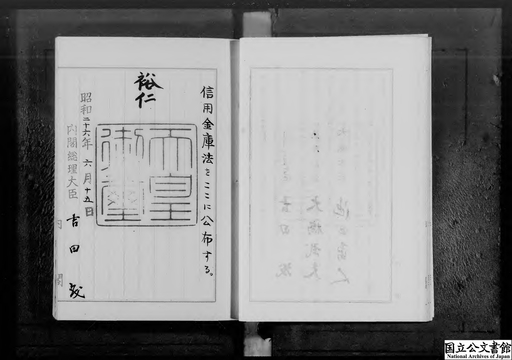 信用金庫法をここに公布する。
裕仁
天皇御璽
昭和二十六年六月十五日
内閣総理大臣 吉田茂
内閣
国立公文書館
National Archives of Japan